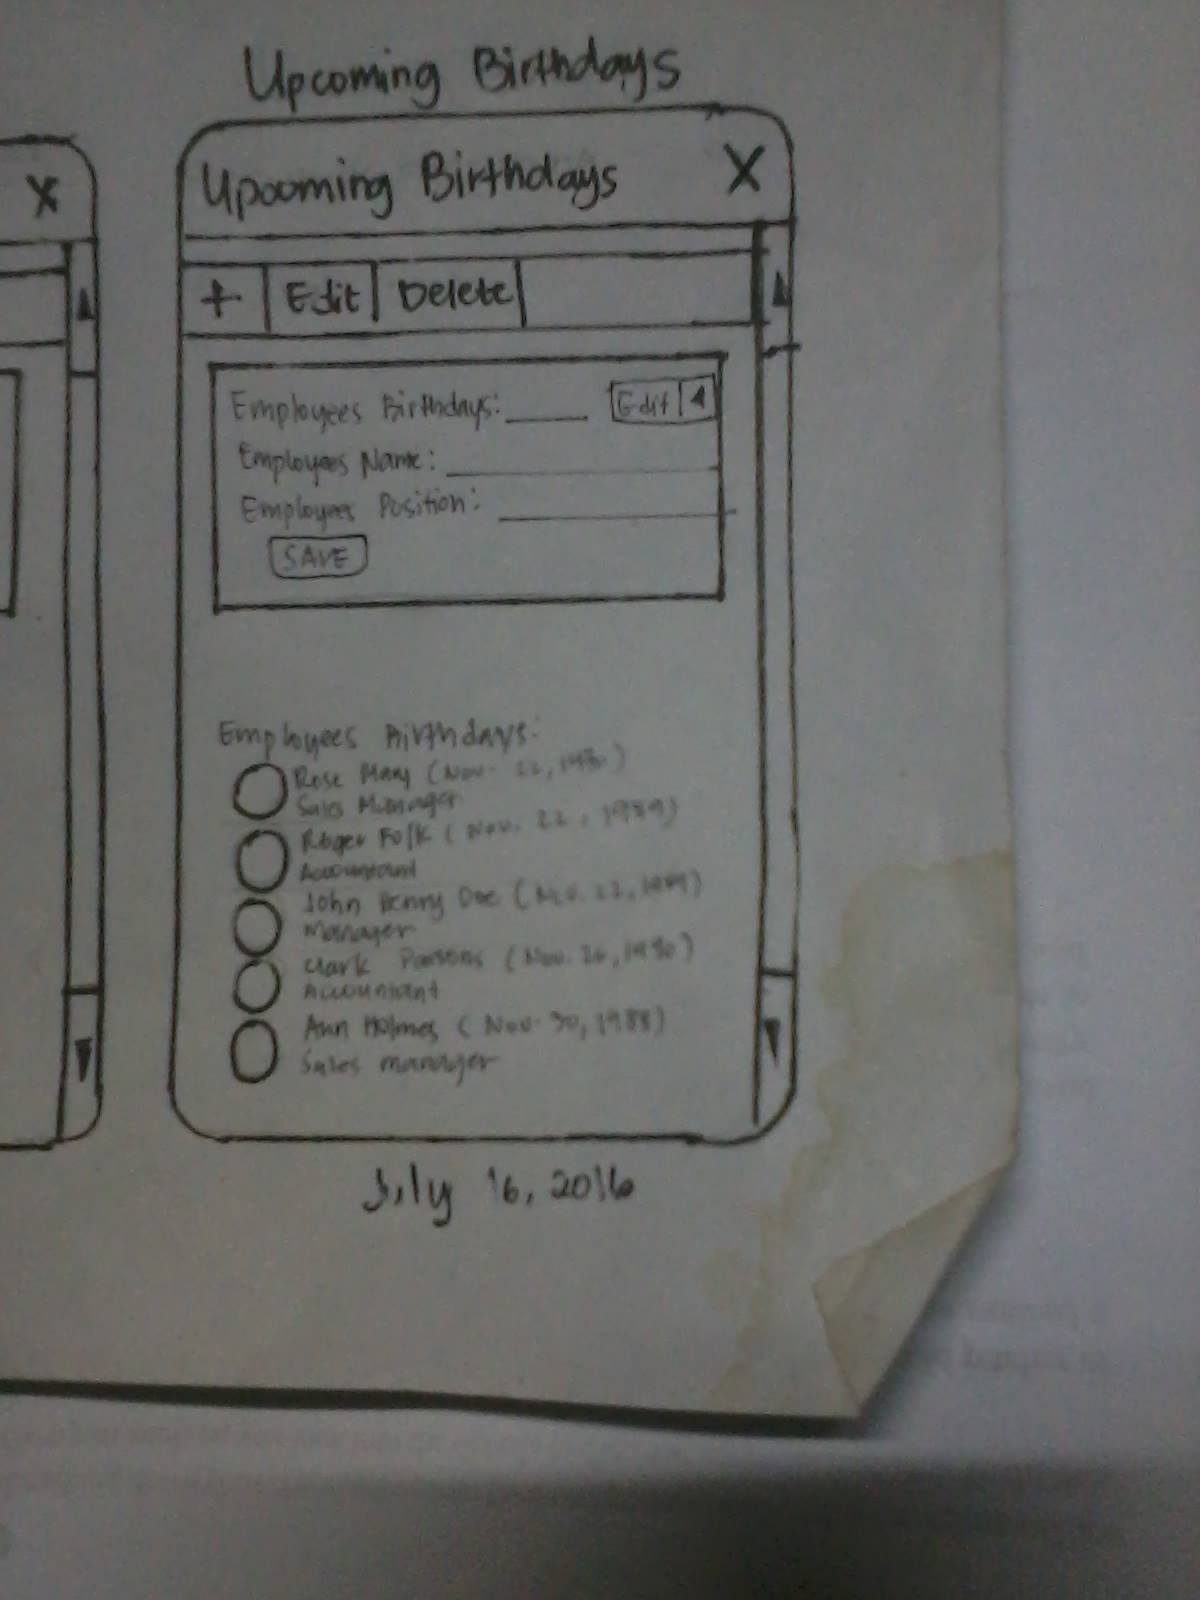 Upcoming Birthdays
X
Upcoming Birthdays X
+ Edit Delete
Employees Birthdays: Edit
Employees Name:
Employees Position:
SAVE
Employees Birthdays:
Rose Mary (Nov. 22,
Sales Manager
Roger Folk (Nov. 22, 1989)
Accountant
John Henry Doe (Nov. 22, 1989)
Manager
Clark Parsons (Nov. 26, 1990)
Accountant
Ann Holmes (Nov. 30, 1988)
Sales manager
July 16, 2016